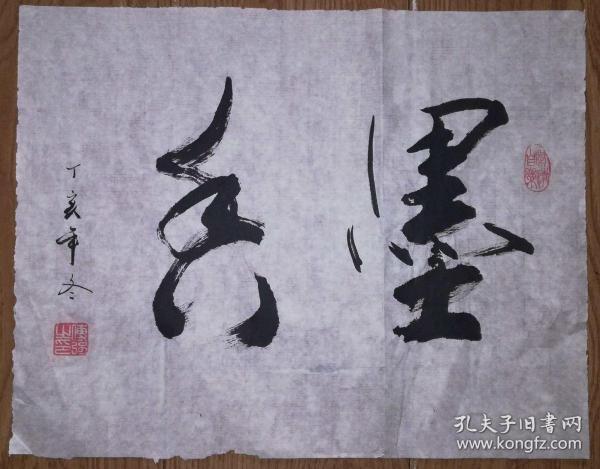 墨香
丁亥年冬
孔夫子旧书网
www.kongfz.com